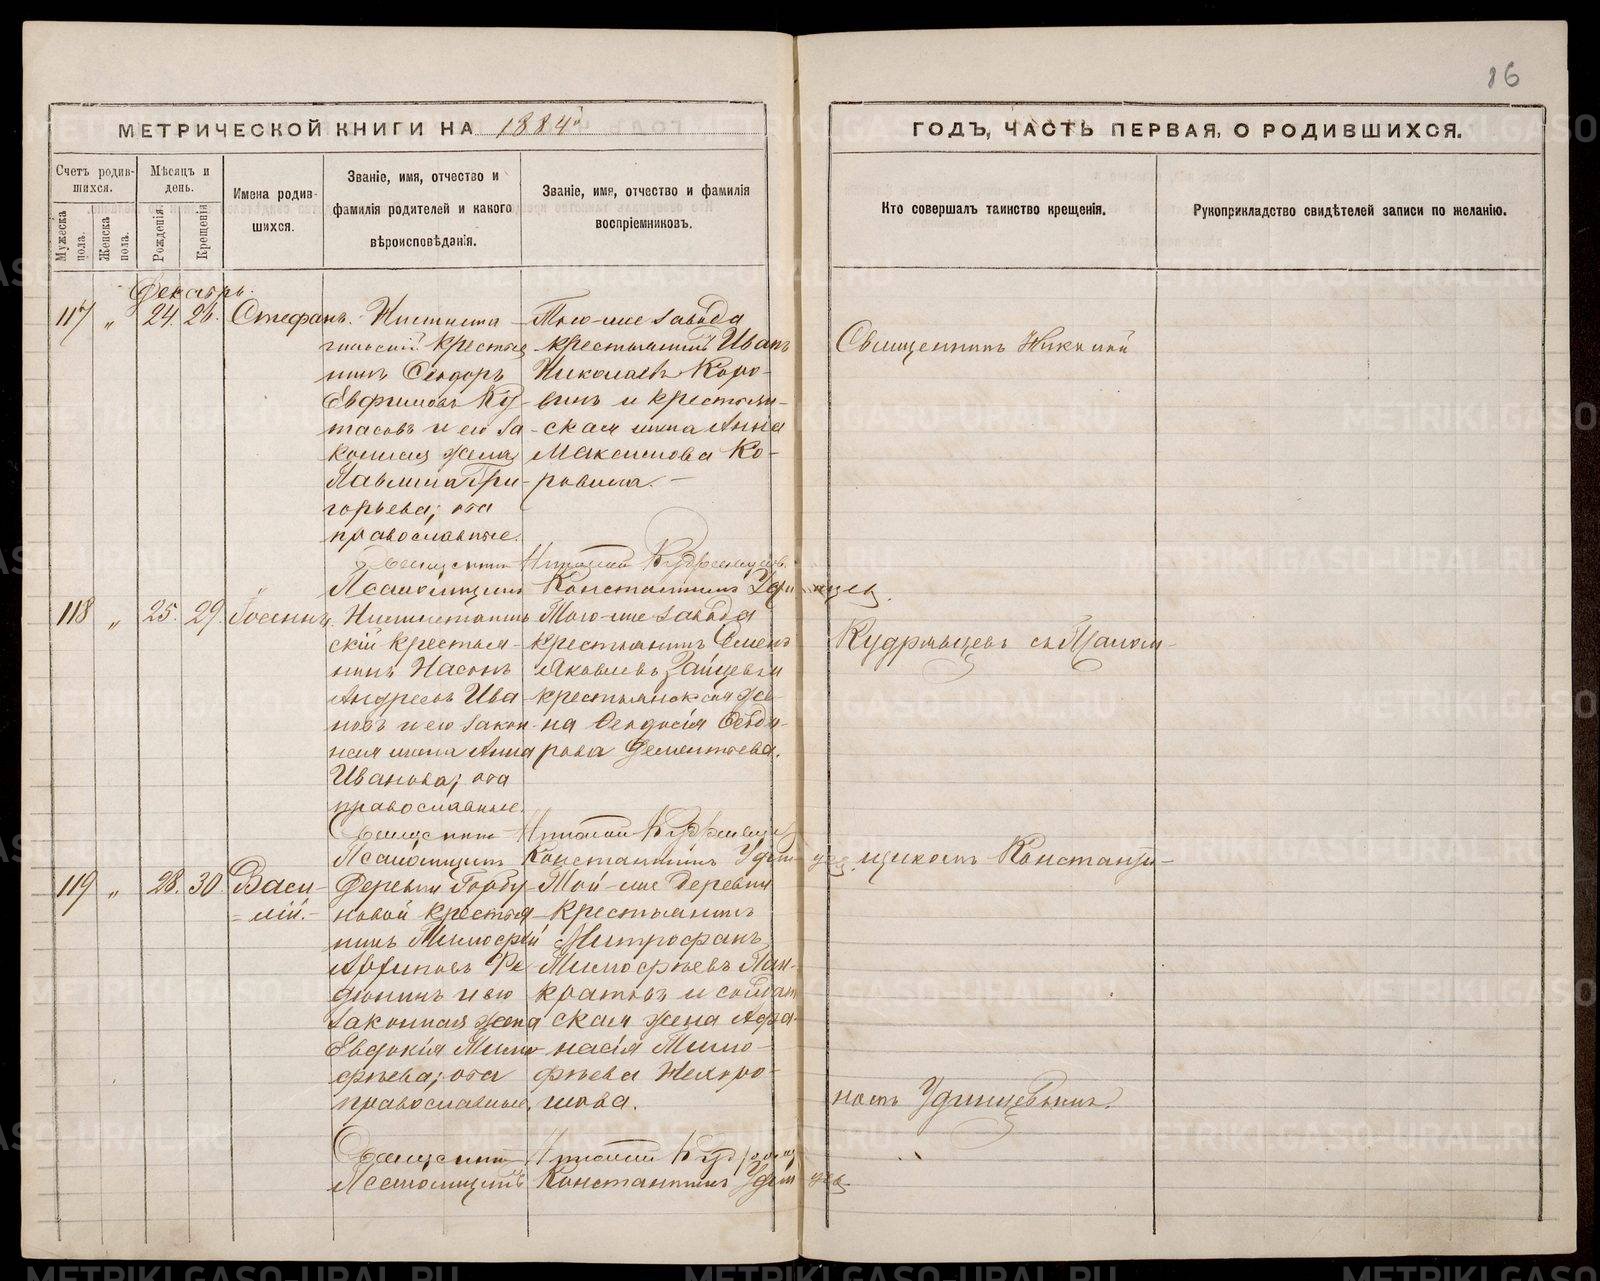 16
МЕТРИЧЕСКОЙ КНИГИ НА 1884й
ГОДЪ, ЧАСТЬ ПЕРВАЯ, О РОДИВШИХСЯ.
Счетъ родив-
шихся.
Мужеска
пола.
Женска
пола.
Мѣсяцъ и
день.
Рожденія.
Крещенія
Имена родив-
шихся.
Званіе, имя, отчество и
фамилія родителей и какого
вѣроисповѣданія.
Званіе, имя, отчество и фамилія
воспріемниковъ.
Кто совершалъ таинство крещенія.
Рукоприкладство свидѣтелей записи по желанію.
Декабрь.
117 „ 24. 26. Стефанъ.
крестья
нинъ Ѳеодоръ
Евфимовъ Ку-
тасовъ и его за-
конная жена
Григ-
горьева; оба
православные.
Того-же завода
крестьянинъ Иванъ
Николаевъ Коро-
винъ и крестьян-
ская жена Анна
Максимова Ко-
ровина.
Священникъ Николай
Священникъ Николай Кудрявцевъ.
Псаломщикъ Константинъ Удинцев.
118 „ 25. 29.
скій крестья-
нинъ Насонъ
Андреевъ Ива-
новъ и его закон-
ная жена Анна
Иванова; оба
православные.
Того-же завода
крестьянинъ Семенъ
Яковлевъ Зайцевъ и
крестьянская же-
на Ѳеодосія Ѳеодо-
рова Дементьева.
Кудрявцевъ съ Псалом-
Священникъ Николай Кудрявцев
Псаломщикъ Константинъ Удинцев.
щикомъ Константи-
119 „ 28. 30 Васи-
лій.
Деревни Горбу-
новой крестья-
нинъ Тимофей
Ре
дюнинъ и его
законная жена
Евдокія Тимо-
фѣева; оба
православные.
Той-же деревни
крестьянинъ
Митрофанъ
Тимофѣевъ Пан-
кратовъ и солдат
ская жена Афа-
насія Тимо-
фѣева Нехоро-
шова.
номъ Удинцевымъ.
Священникъ Николай Кудрявцев
Псаломщикъ Константинъ Удинцев